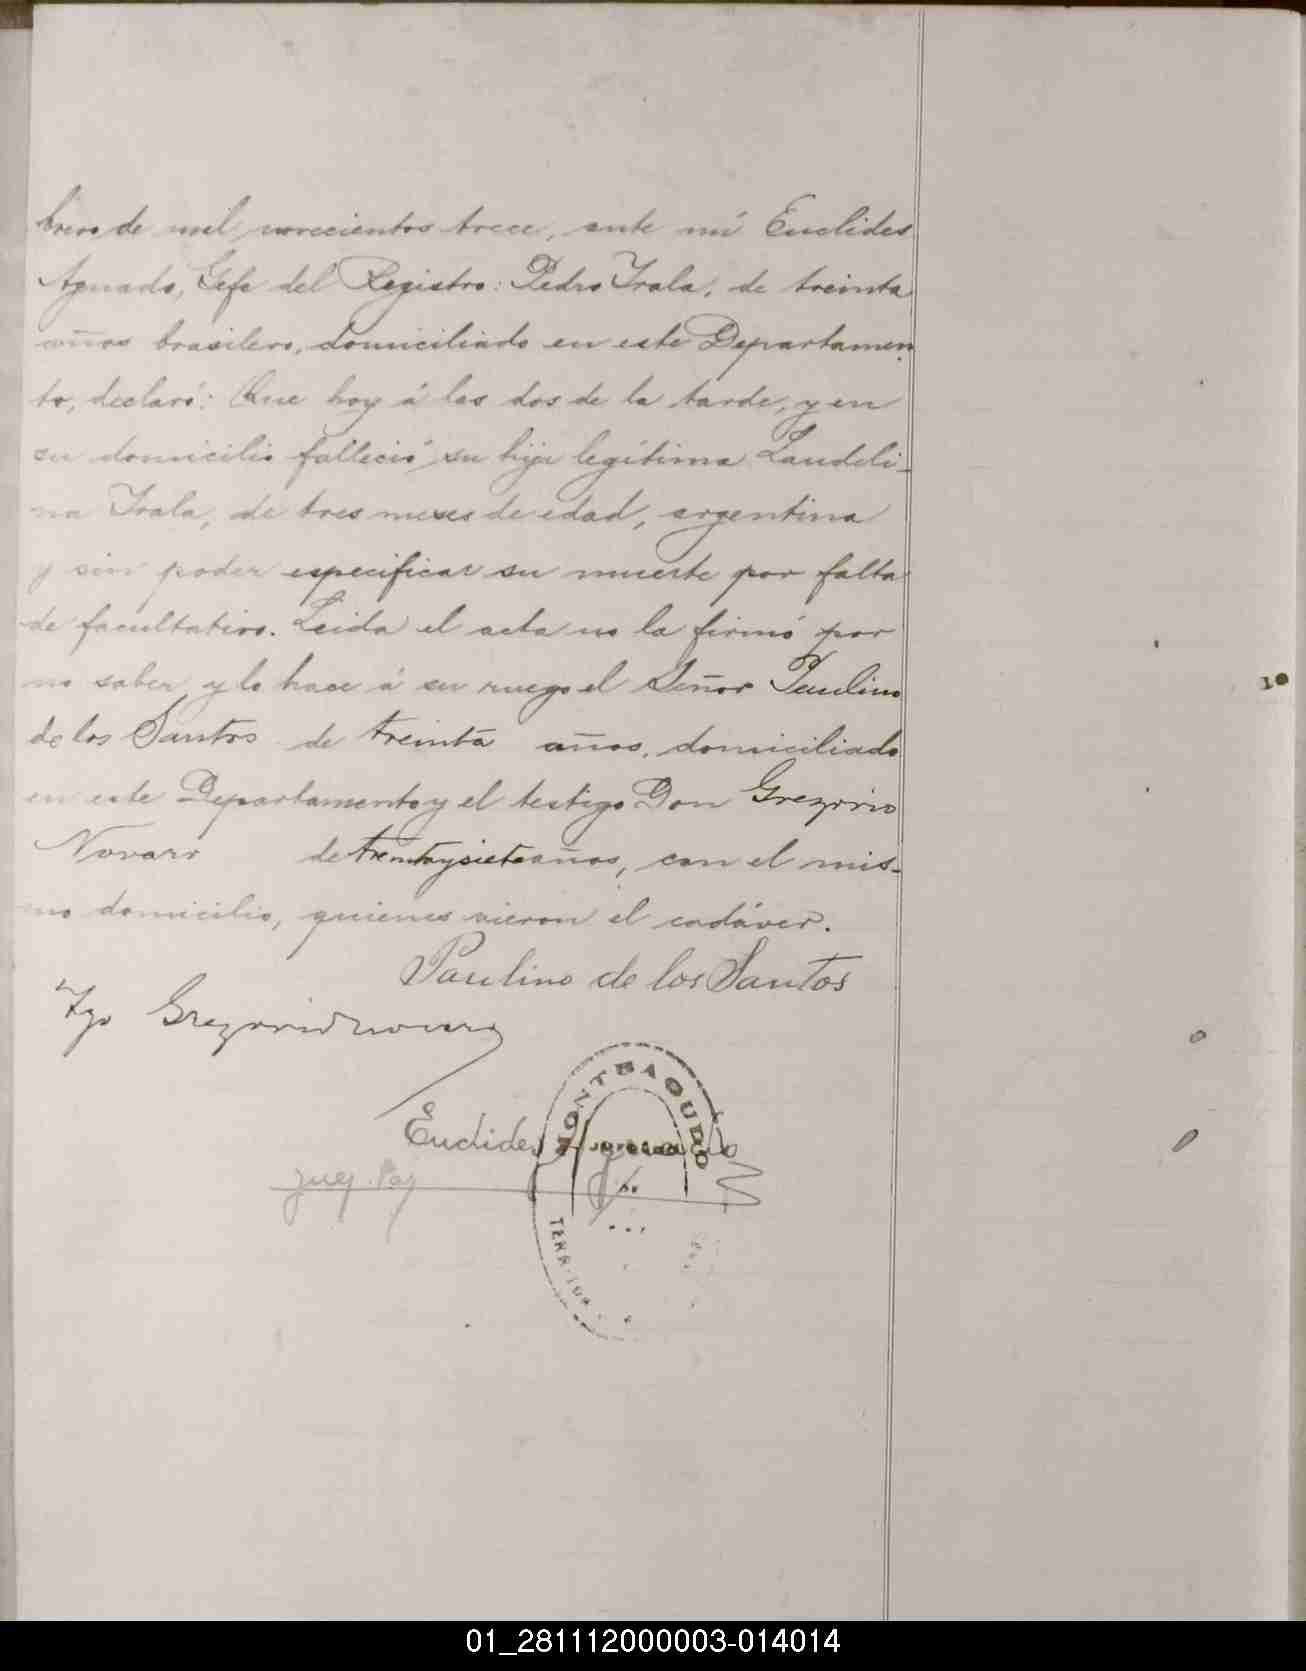 brero de mil novecientos trece, ante mí Euclides
Aguado, Gefe del Registro: Pedro Irala, de treinta
años brasilero, domiciliado en este Departamen
to, declaró: Que hoy á las dos de la tarde, y en
su domicilio falleció su hija legítima Laudeli-
na Irala, de tres meses de edad, argentina
y sin poder especificar su muerte por falta
de facultativo. Leida el acta no la firmó por
no saber y lo hace á su ruego el Señor Paulino
de los Santos de treinta años, domiciliado
en este Departamento y el testigo Don Gregorio
Novaro de treinta y siete años, con el mis-
mo domicilio, quienes vieron el cadáver.
Paulino de los Santos
Tgo Gregorio Novaro
Euclides Aguado
Juez. Paz
MONTEAGUDO
10
01_281112000003-014014